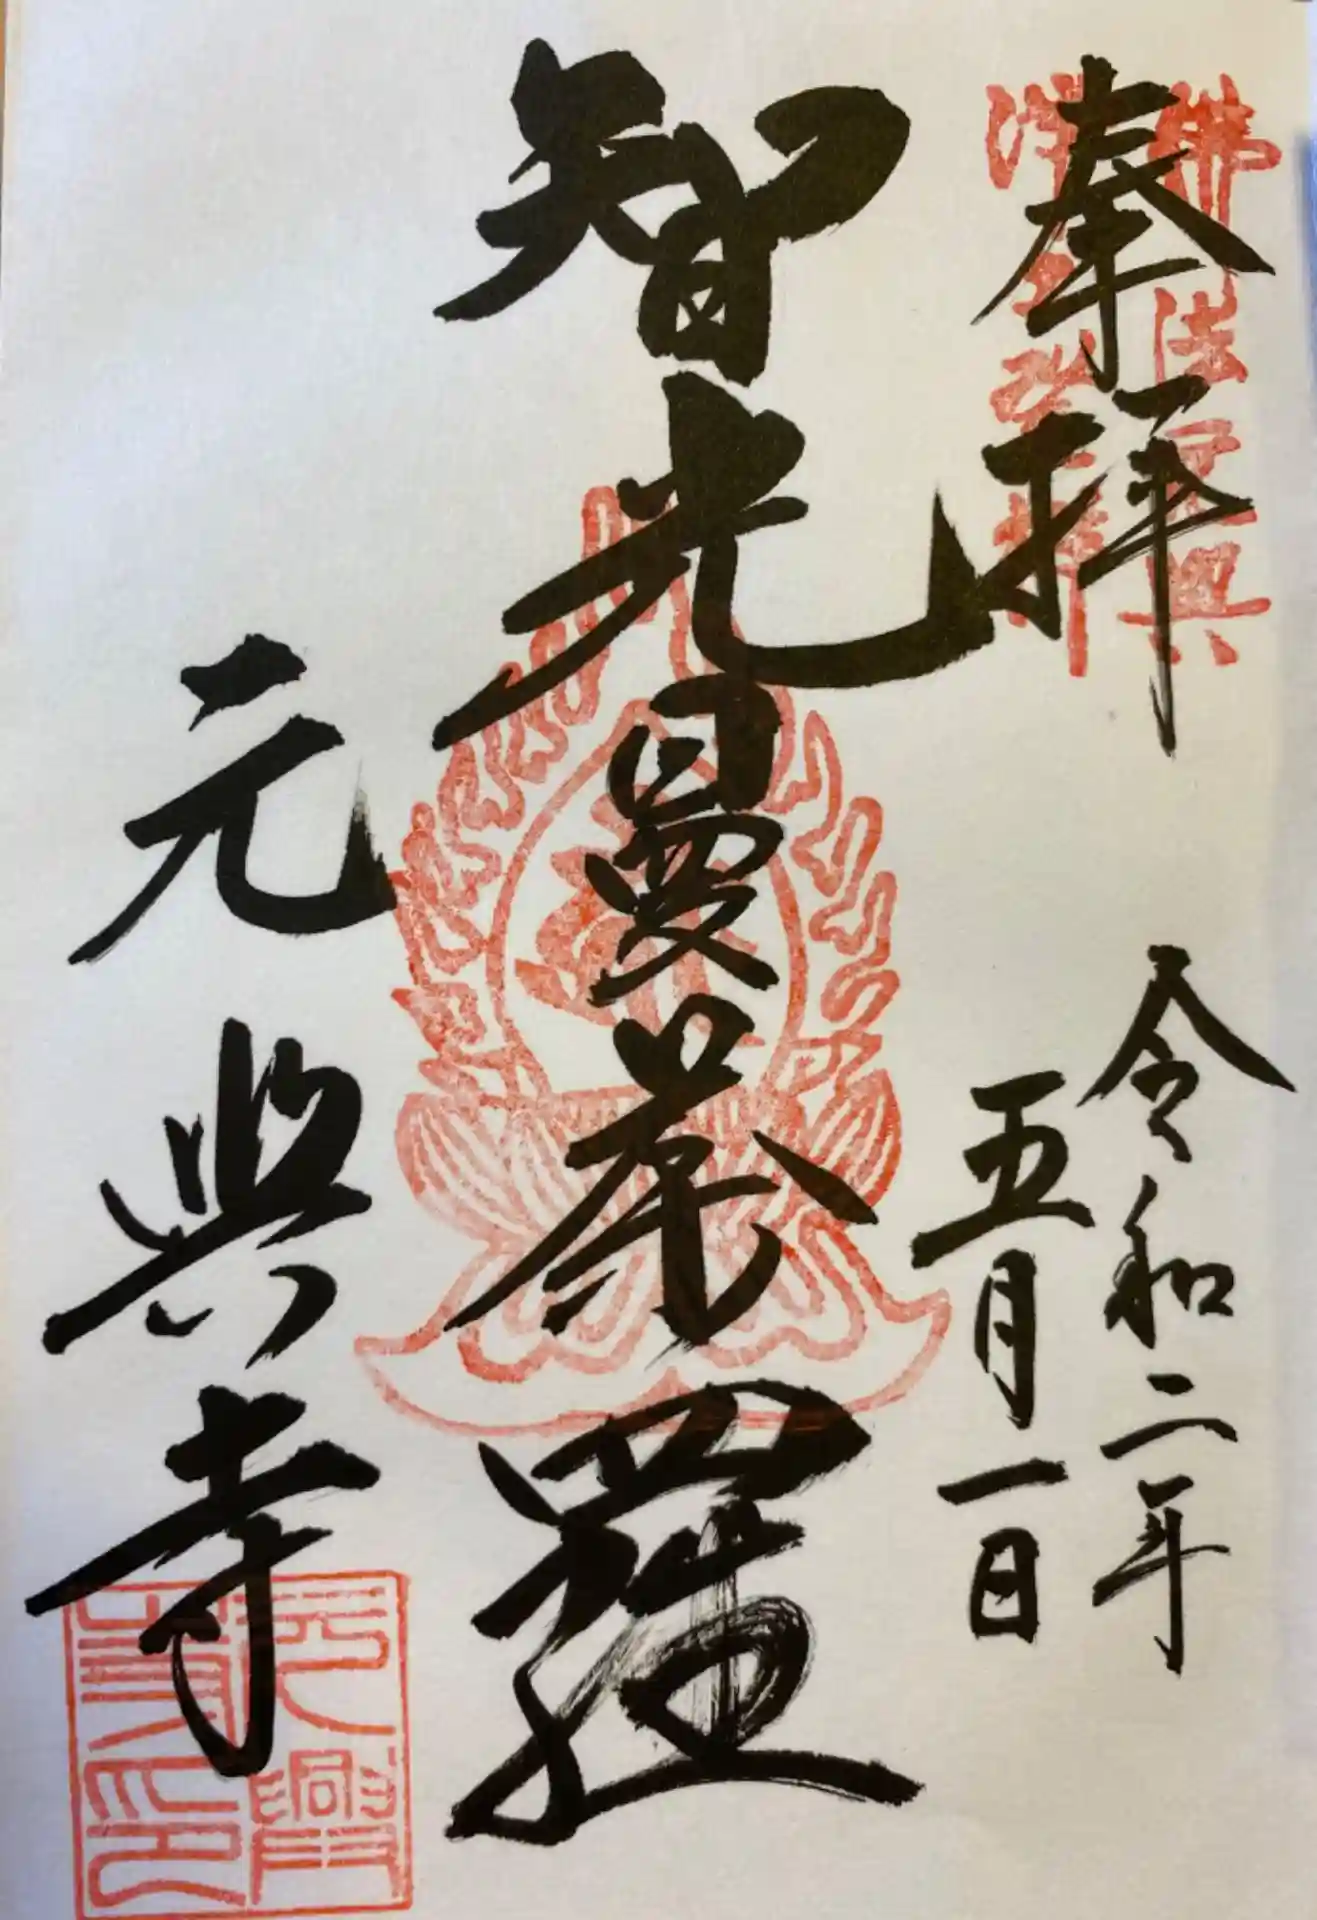 奉拝
令和二年
五月一日
智光曼荼羅
元興寺
元興
寺印